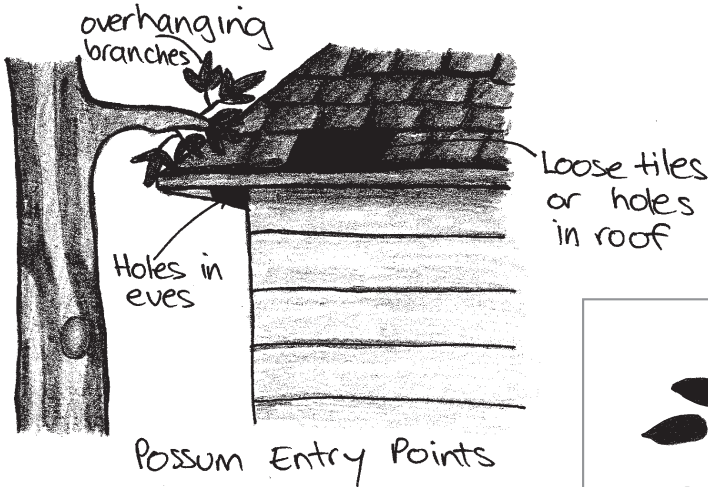 overhanging
branches
Loose tiles
or holes
in roof
Holes in
eves
Possum Entry Points